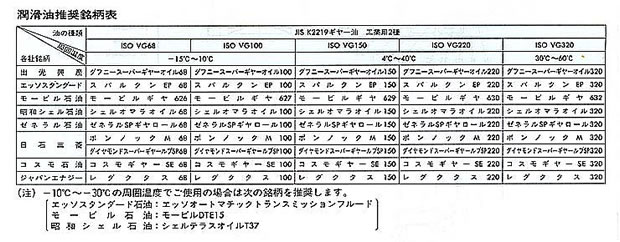 潤滑油推奨銘柄表
油の種類 JIS K2219ギヤー油 工業用2種
周囲温度 ISO VG68 ISO VG100 ISO VG150 ISO VG220 ISO VG320
各社銘柄 －15℃～10℃ 4℃～40℃ 30℃～60℃
出光興産 ダフニースーパーギヤーオイル68 ダフニースーパーギヤーオイル100 ダフニースーパーギヤーオイル150 ダフニースーパーギヤーオイル220 ダフニースーパーギヤーオイル320
エッソスタンダード スパルタン EP 68 スパルタン EP 100 スパルタン EP 150 スパルタン EP 220 スパルタン EP 320
モービル石油 モービルギヤ 626 モービルギヤ 627 モービルギヤ 629 モービルギヤ 630 モービルギヤ 632
昭和シェル石油 シェルオマラオイル 68 シェルオマラオイル 100 シェルオマラオイル 150 シェルオマラオイル 220 シェルオマラオイル 320
ゼネラル石油 ゼネラルSPギヤロール 68 ゼネラルSPギヤロール 100 ゼネラルSPギヤロール 150 ゼネラルSPギヤロール 220 ゼネラルSPギヤロール 320
日石三菱 ボンノック M 68 ボンノック M 100 ボンノック M 150 ボンノック M 220 ボンノック M 320
ダイヤモンドスーパーギヤールブSP68 ダイヤモンドスーパーギヤールブSP100 ダイヤモンドスーパーギヤールブSP150 ダイヤモンドスーパーギヤールブSP220 ダイヤモンドスーパーギヤールブSP320
コスモ石油 コスモギヤー SE 68 コスモギヤー SE 100 コスモギヤー SE 150 コスモギヤー SE 220 コスモギヤー SE 320
ジャパンエナジー レダクタス 68 レダクタス 100 レダクタス 150 レダクタス 220 レダクタス 320
(注) －10℃～－30℃の周囲温度でご使用の場合は次の銘柄を推奨します。
エッソスタンダード石油：エッソオートマチックトランスミッションフルード
モービル石油：モービルDTE15
昭和シェル石油：シェルテラスオイルT37